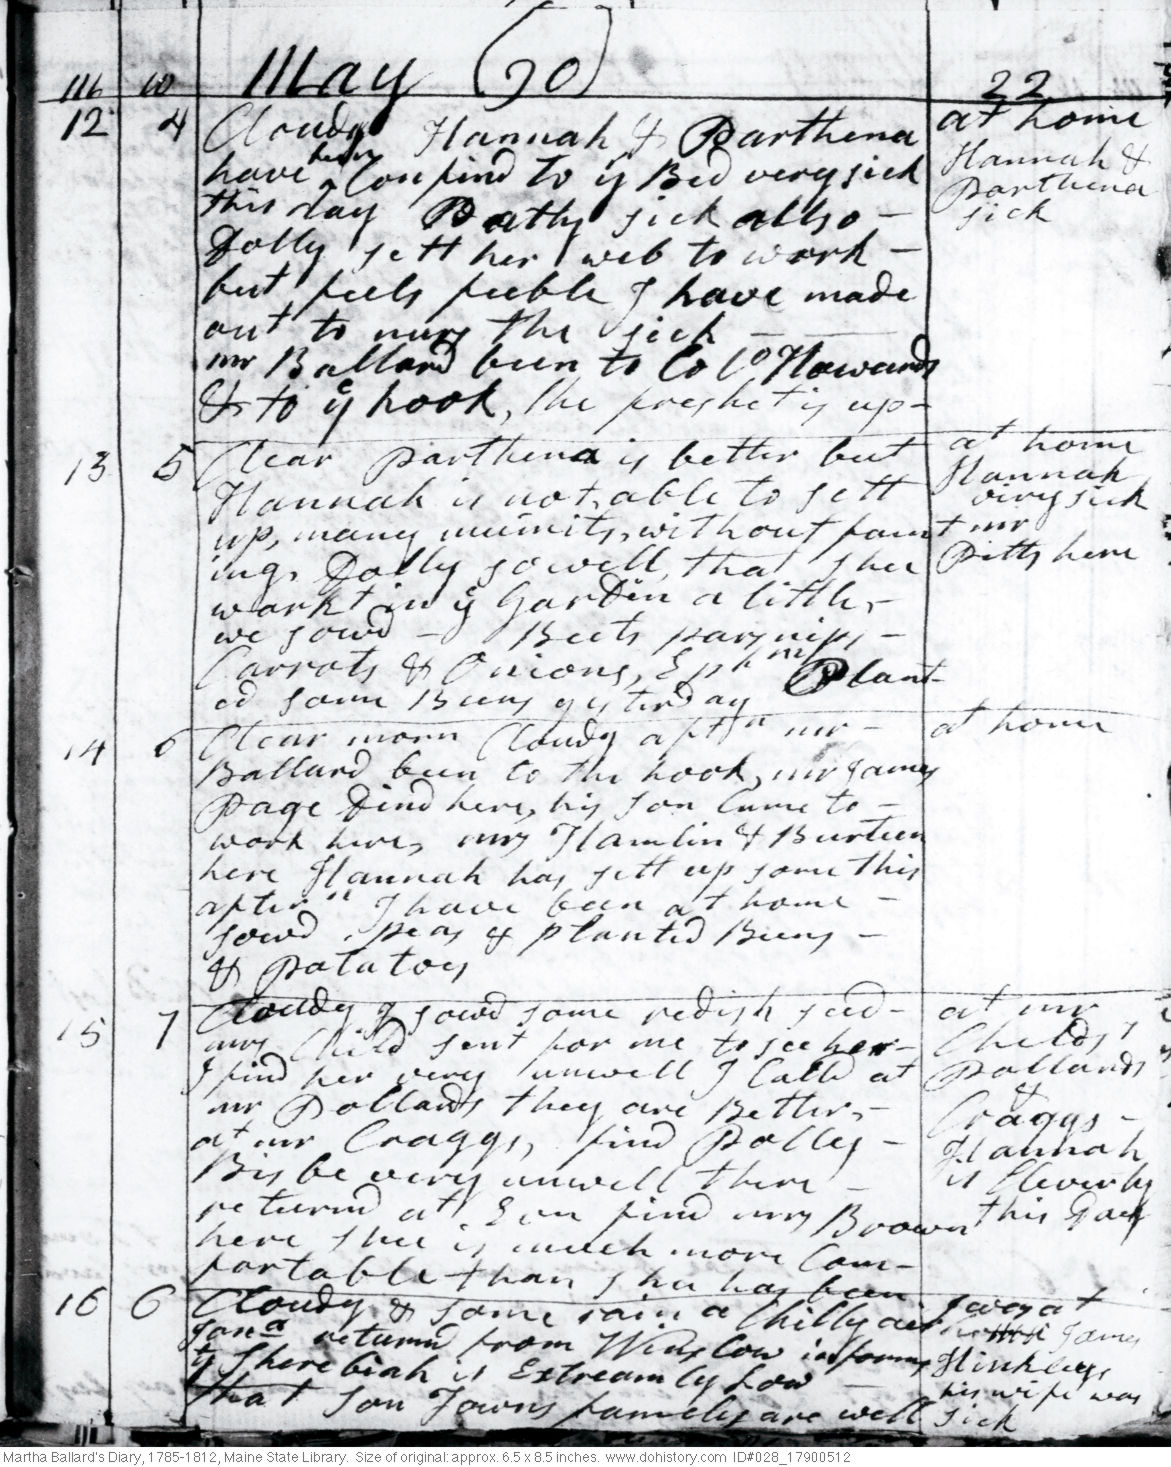 May (90)
22
12 4 Cloudy Hannah & Parthena
have been Confind to ye Bed very sick
this day Pathy sick allso -
Dolly sett her web to work -
but feels feeble I have made
out to nurs the sick -
mr Ballard been to Colo Howards
& to ye hook, the freshet is up -
at home
Hannah &
Parthena
sick
13 5 Clear Parthena is better but
Hannah is not able to sett
up, many minnits, without faint
ing, Dolly so well, that shee
workt in ye Gardin a little, -
we sowd - Beets parsnips -
Carrots & Onions, Ephm Plant-
ed some Beens yesterday
at home
Hannah
very sick
mr
Pitts here
14 6 Clear morn Cloudy aftn mr -
Ballard been to the hook, mr James
Page Dind here, his son Came to -
work here, mrs Hamlin & Burteen
here Hannah has sett up some this
aftern I have been at home -
sowd peas & planted Beens -
& potatoes
at home
15 7 Cloudy I sowd some redish seed -
mrs Child sent for me to see her -
I find her very unwell I Calld at
mr Pollards they are Better, -
at mr Craggs, find Polley -
Bisbe very unwell there -
returnd at Eon find mrs Brown
here shee is much more Com-
fortable than shee has been
at mr
Childs,
Pollards
&
Craggs -
Hannah
is Cleverly
this Day
16 Cloudy & some rain a Chilly air
Jona returnd from Winslow informs
yt Sherebiah is Extreamly low -
that son Towns famely are well
I was at
James
Hinkleys
his wife was
sick
Martha Ballard's Diary, 1785-1812, Maine State Library. Size of original: approx. 6.5 x 8.5 inches. www.dohistory.com ID#028_17900512